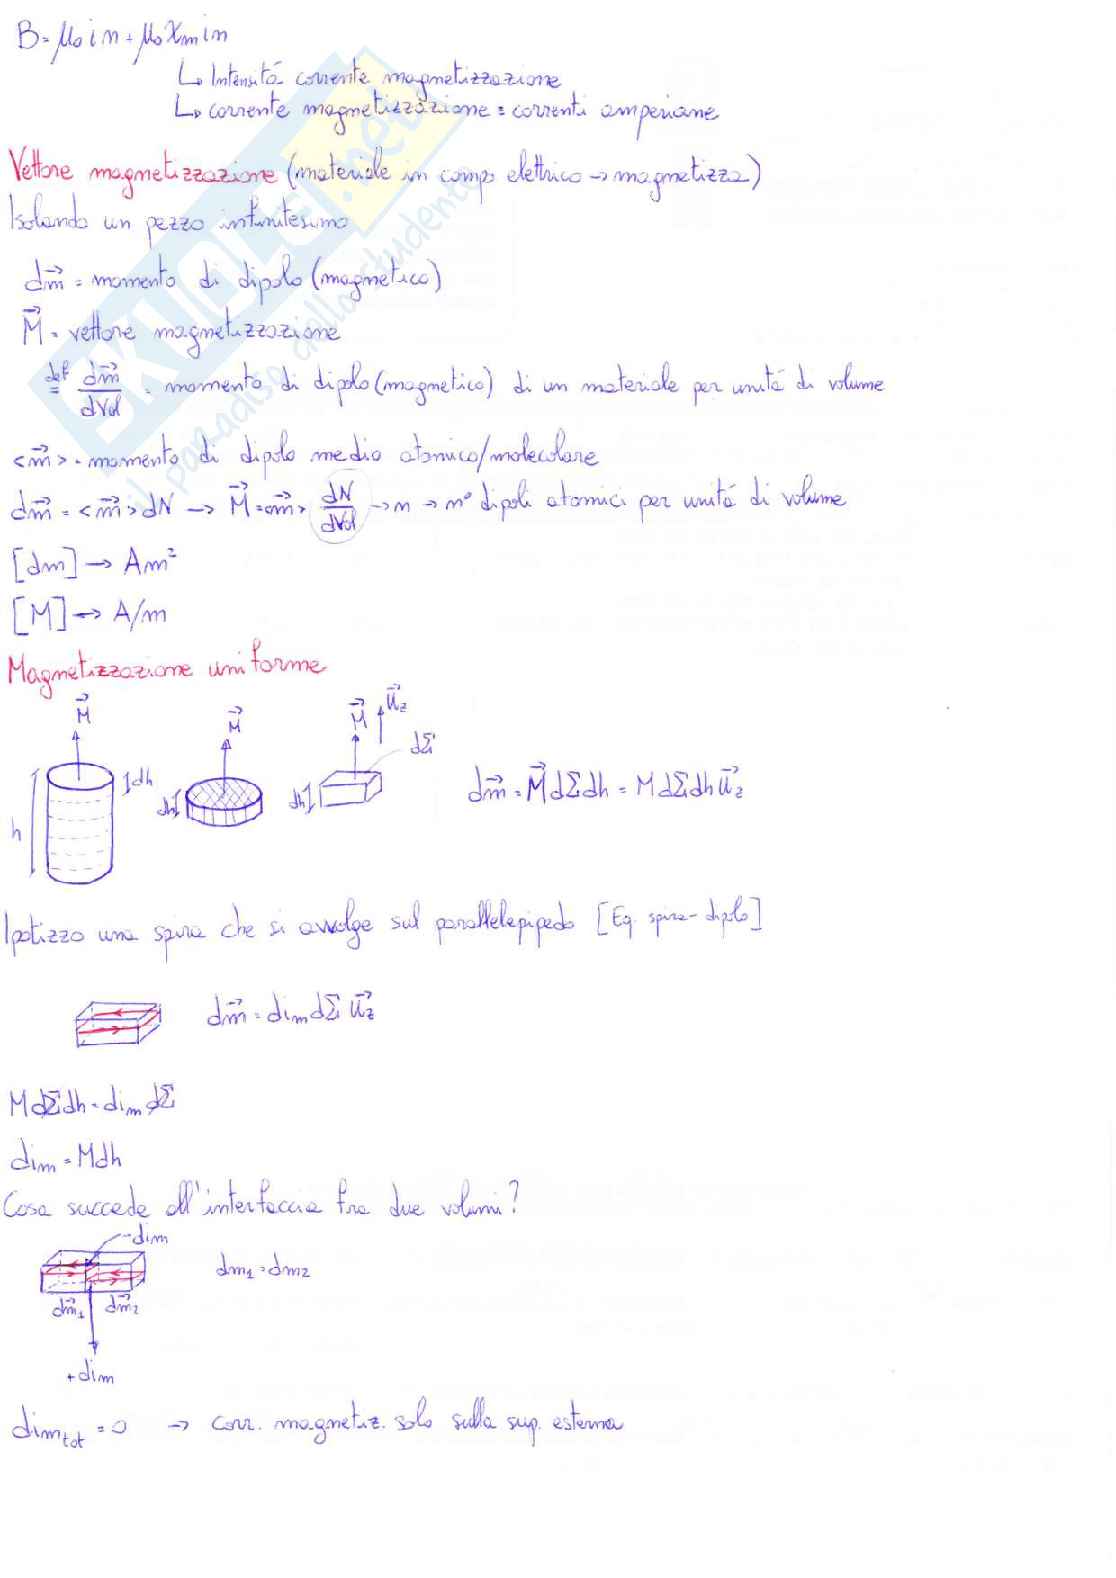 B = μ₀ i n + μ₀ χₘ i n
↳ Intensità corrente magnetizzazione
↳ corrente magnetizzazione = correnti amperiane
Vettore magnetizzazione (materiale in campo elettrico → magnetizza)
Isolando un pezzo infinitesimo
dm⃗ = momento di dipolo (magnetico)
M⃗ = vettore magnetizzazione
def= dm⃗/dVol = momento di dipolo (magnetico) di un materiale per unità di volume
<m⃗> = momento di dipolo medio atomico/molecolare
dm⃗ = <m⃗> dN → M⃗ = <m⃗> dN/dVol → n → n° dipoli atomici per unità di volume
[dm] → Am²
[M] → A/m
Magnetizzazione uniforme
M⃗ M⃗ M⃗ u⃗z
dΣ
dh dh dh
h
dm⃗ = M⃗ dΣ dh = M dΣ dh u⃗z
Ipotizzo una spira che si avvolge sul parallelepipedo [Eq. spira-dipolo]
dm⃗ = diₘ dΣ u⃗z
M dΣ dh = diₘ dΣ
diₘ = M dh
Cosa succede all'interfaccia fra due volumi?
-diₘ
dm₁ = dm₂
dm⃗₁ dm⃗₂
+diₘ
diₘ tot = 0 → corr. magnetiz. solo sulla sup. esterna
SKUOLA.net
il paradiso dello studente